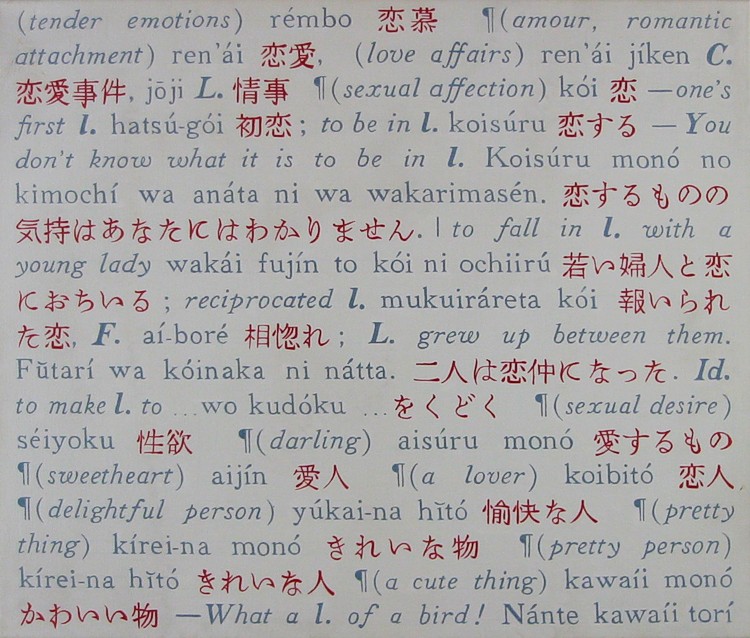 (tender emotions) rémbo 恋慕 ¶(amour, romantic
attachment) ren'ái 恋愛, (love affairs) ren'ái jíken C.
恋愛事件, jōji L. 情事 ¶(sexual affection) kói 恋 —one's
first l. hatsú-gói 初恋; to be in l. koisúru 恋する —You
don't know what it is to be in l. Koisúru monó no
kimochí wa anáta ni wa wakarimasén. 恋するものの
気持はあなたにはわかりません. | to fall in l. with a
young lady wakái fujín to kói ni ochiirú 若い婦人と恋
におちいる; reciprocated l. mukuiráreta kói 報いられ
た恋, F. aí-boré 相惚れ; L. grew up between them.
Fŭtarí wa kóinaka ni nátta. 二人は恋仲になった. Id.
to make l. to ...wo kudóku ...をくどく ¶(sexual desire)
séiyoku 性欲 ¶(darling) aisúru monó 愛するもの
¶(sweetheart) aijín 愛人 ¶(a lover) koibitó 恋人
¶(delightful person) yúkai-na hĭtó 愉快な人 ¶(pretty
thing) kírei-na monó きれいな物 ¶(pretty person)
kírei-na hĭtó きれいな人 ¶(a cute thing) kawaíi monó
かわいい物 —What a l. of a bird! Nánte kawaíi torí